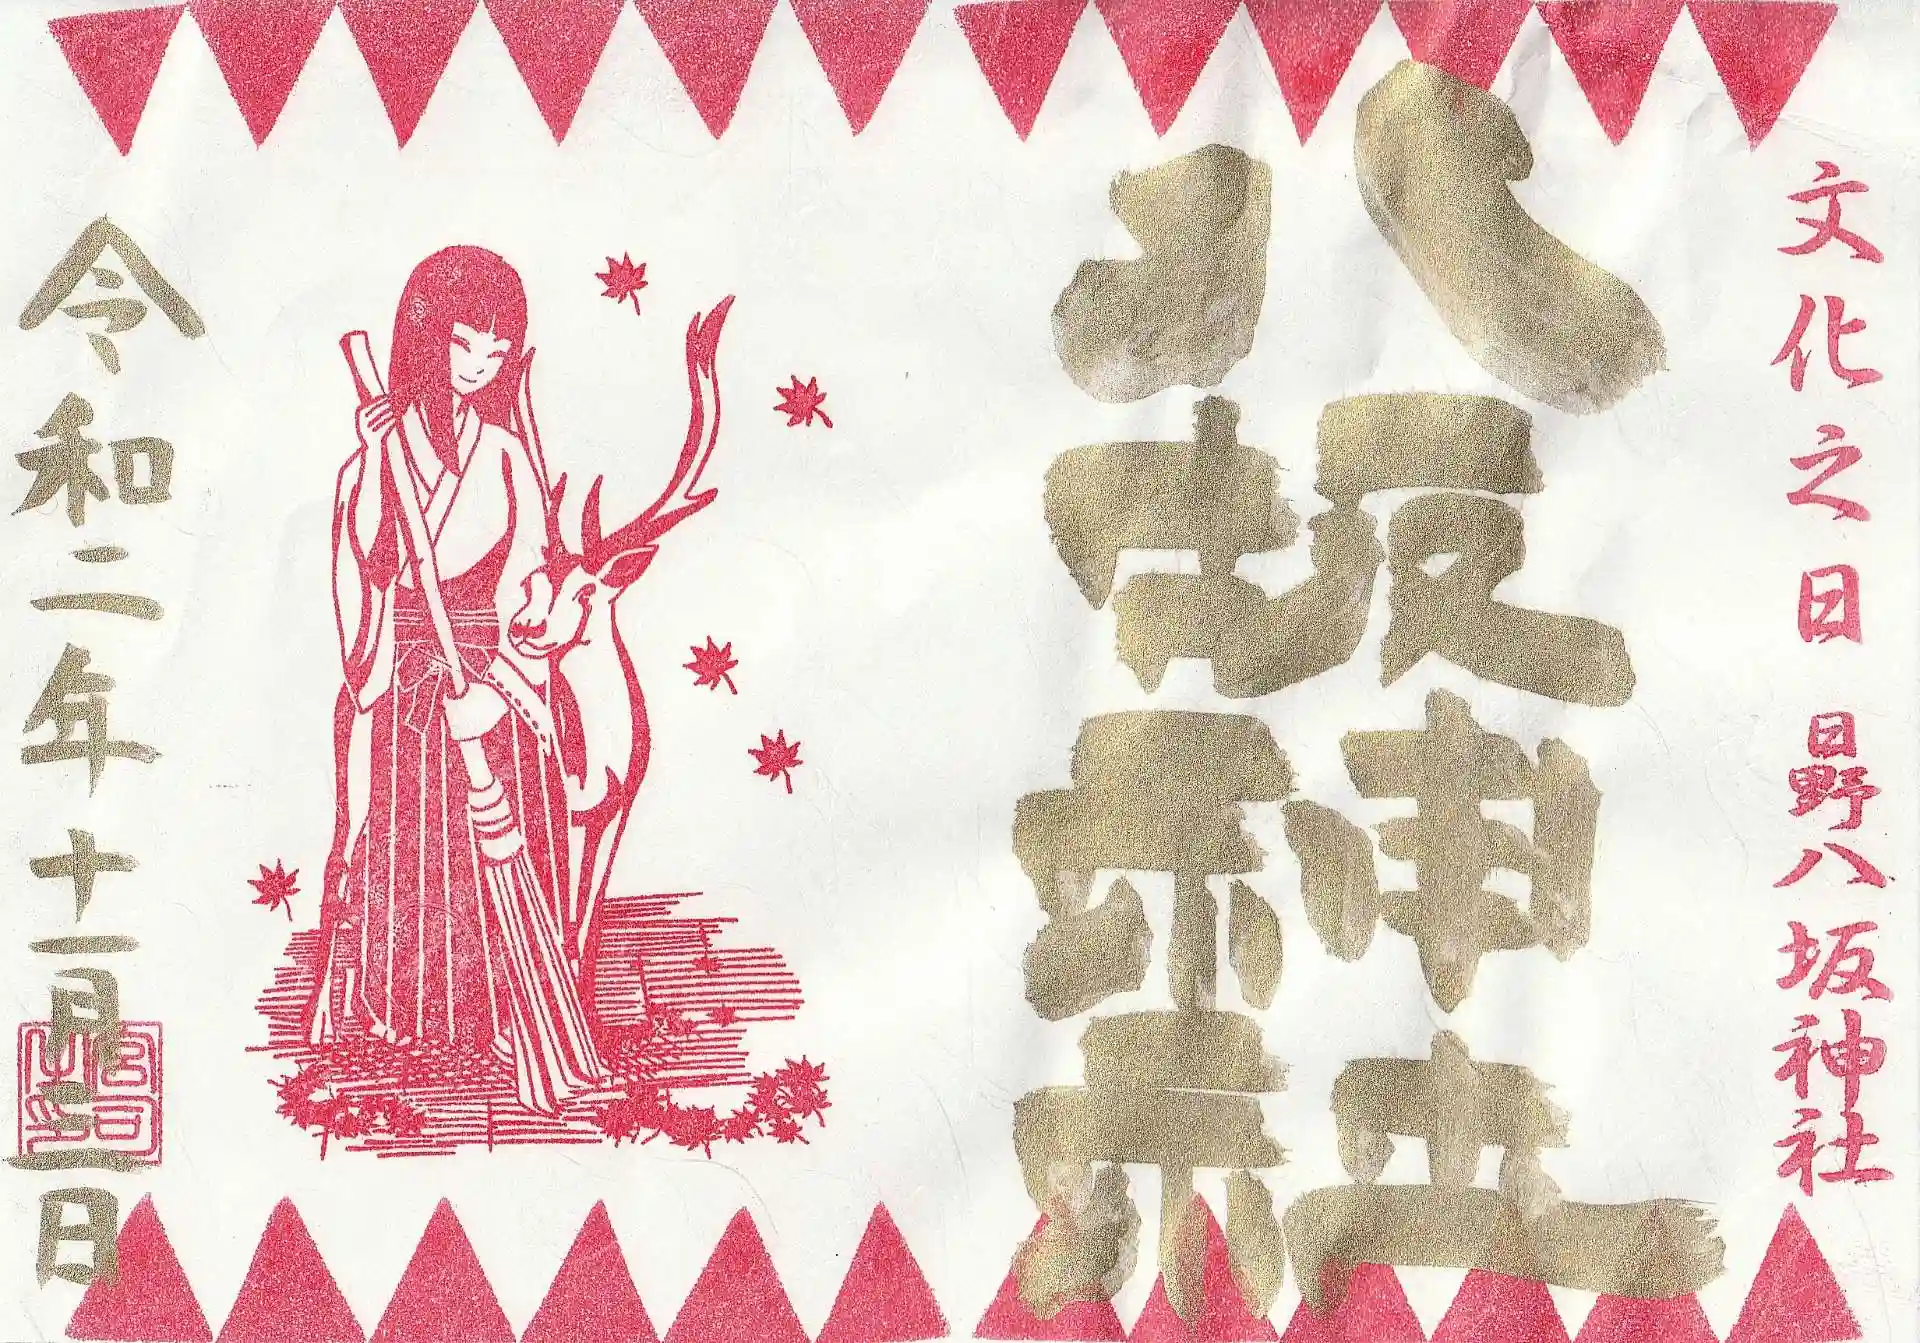 文化之日 日野八坂神社
八坂神社
令和二年十一月三日
宮司之印